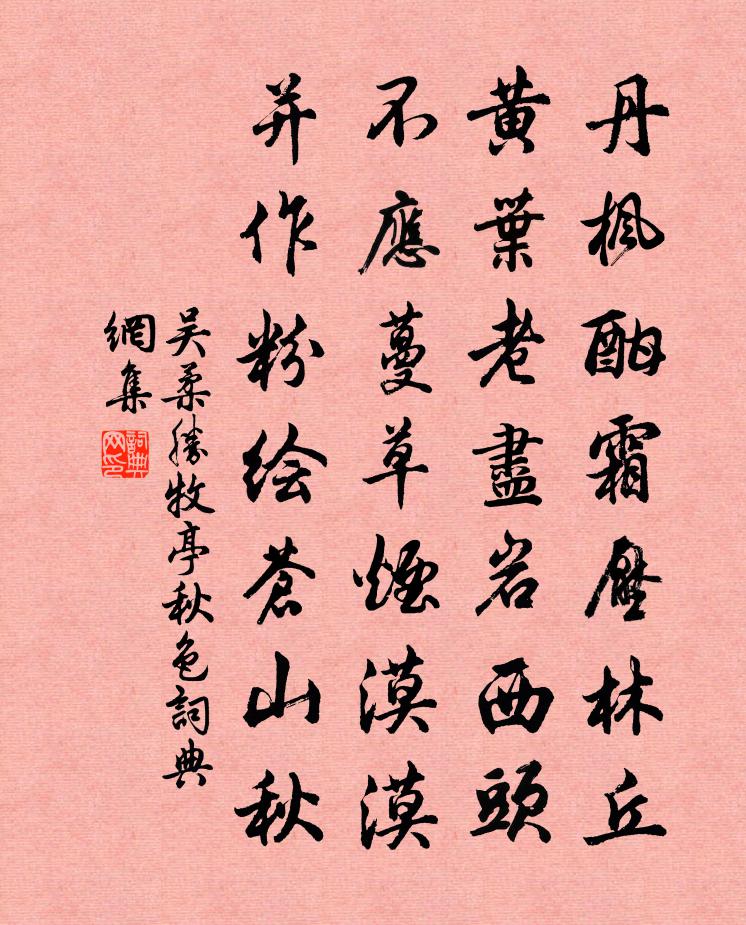 丹楓酣霜壓林丘
黃葉老盡岩西頭
不應蔓草煙漠漠
并作粉绘蒼山秋
吴柔勝牧亭秋色詞典
網集
詞典網印